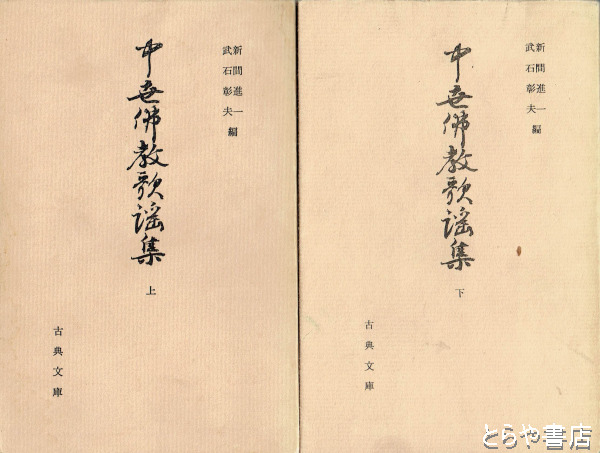 新間進一
武石彰夫編
中世佛教歌謡集
上
古典文庫
新間進一
武石彰夫編
中世佛教歌謡集
下
古典文庫
とらや書店